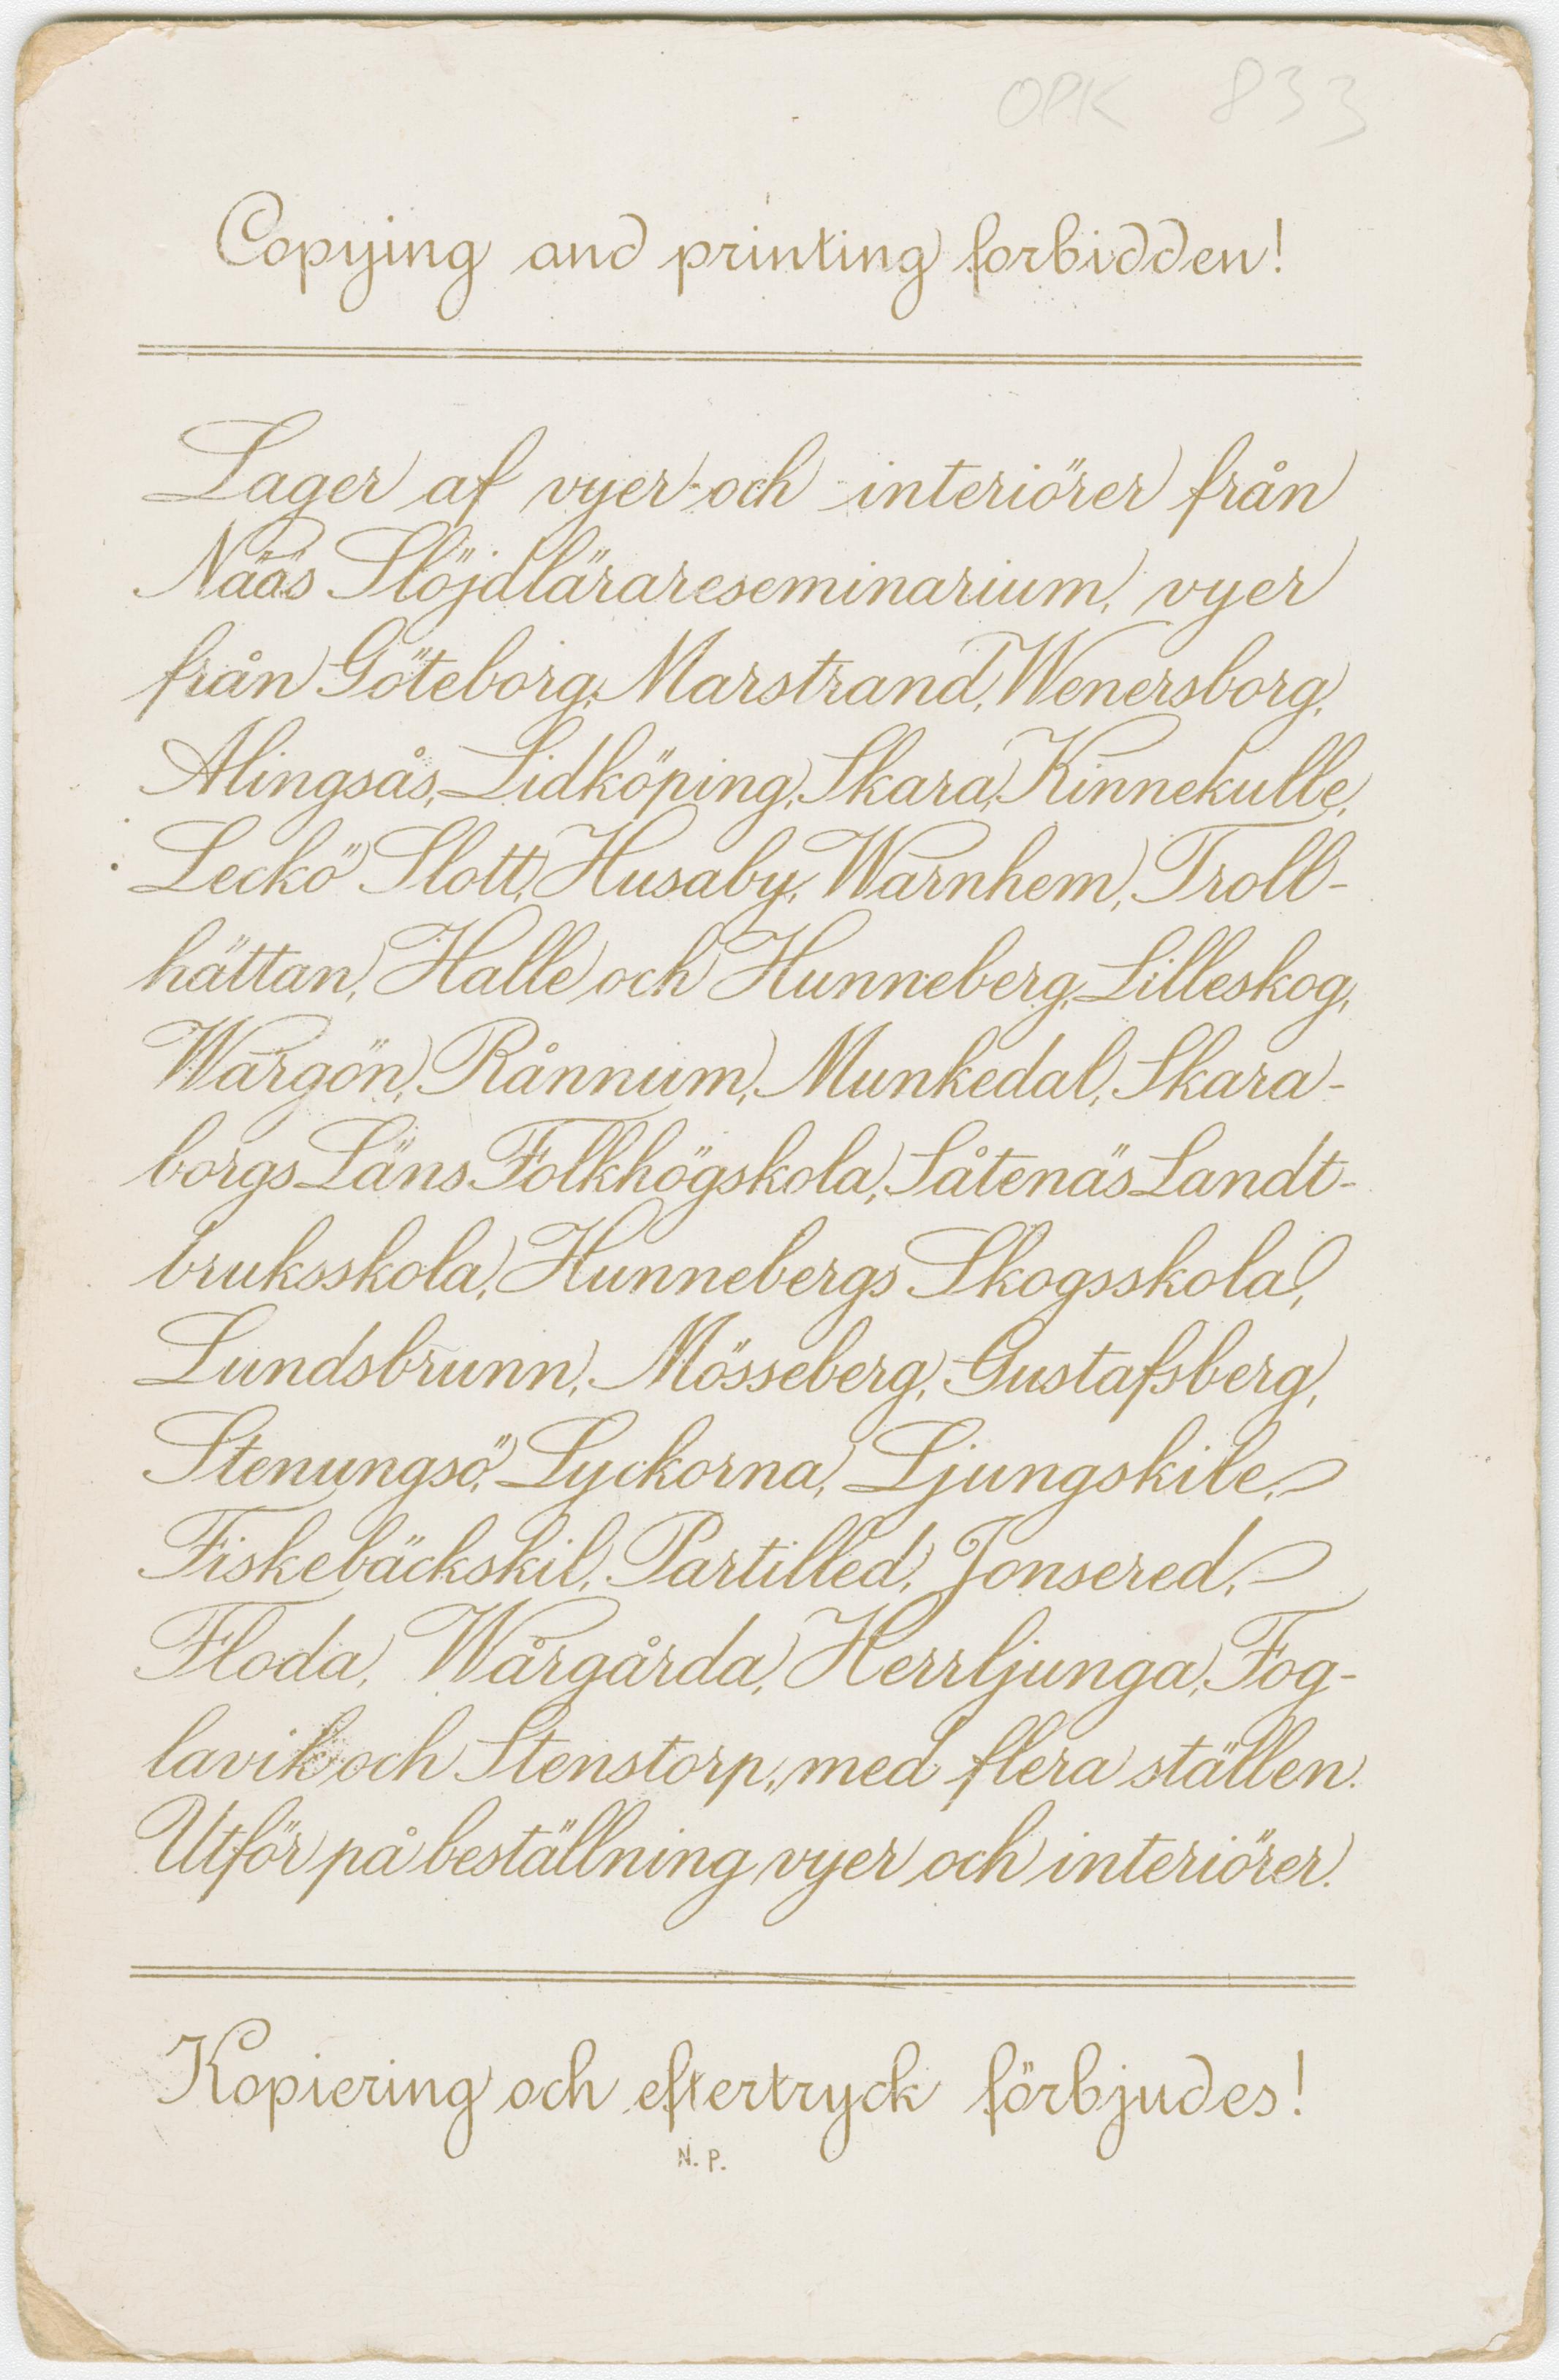 OPK 833
Copying and printing forbidden!
Lager af vyer och interiörer från
Nääs Slöjdlärareseminarium, vyer
från Göteborg, Marstrand, Wenersborg,
Alingsås, Lidköping, Skara, Kinnekulle,
Leckö Slott, Husaby, Warnhem, Troll-
hättan, Halle och Hunneberg, Lilleskog,
Wargön, Rånnum, Munkedal, Skara-
borgs Läns Folkhögskola, Såtenäs Landt-
bruksskola, Hunnebergs Skogsskola,
Lundsbrunn, Mösseberg, Gustafsberg,
Stenungsö, Lyckorna, Ljungskile,
Fiskebäckskil, Partilled, Jonsered,
Floda, Wårgårda, Herrljunga, Fog-
lavik och Stenstorp, med flera ställen.
Utför på beställning vyer och interiörer.
Kopiering och eftertryck förbjudes!
N. P.